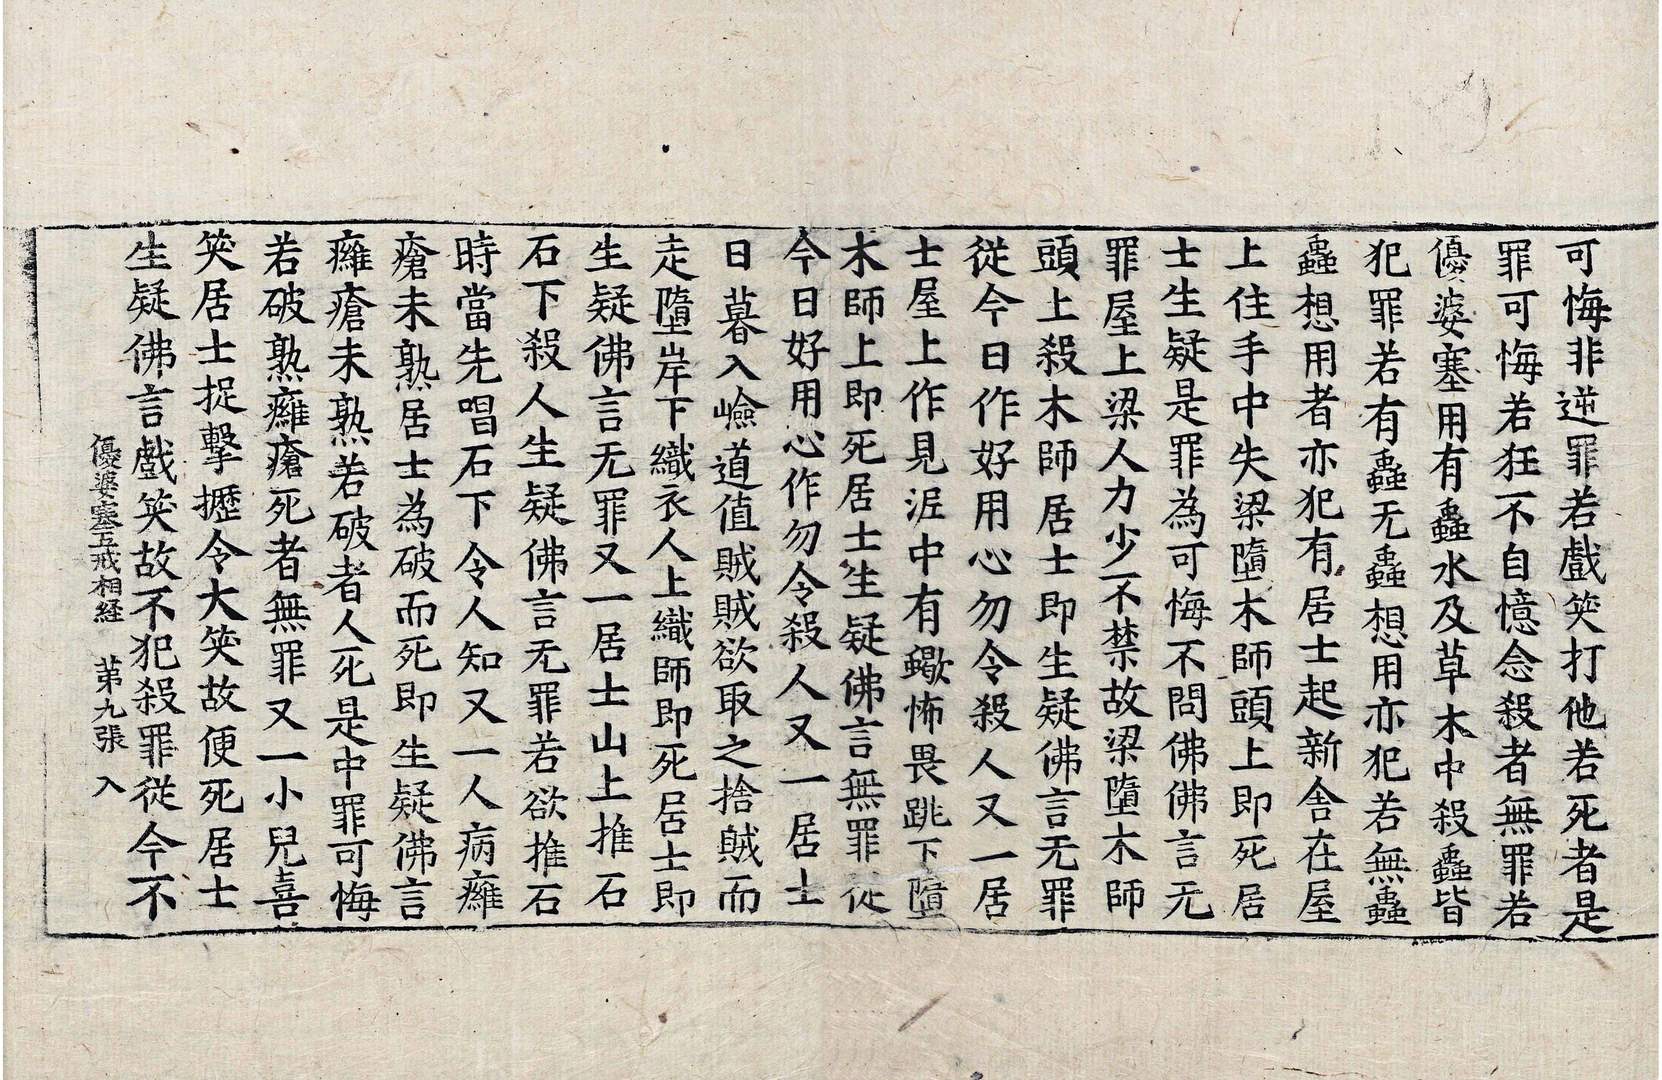 可悔非逆罪若戲笑打他若死者是
罪可悔若狂不自憶念殺者無罪若
優婆塞用有蟲水及草木中殺蟲皆
犯罪若有蟲无蟲想用亦犯若無蟲
蟲想用者亦犯有居士起新舍在屋
上住手中失梁墮木師頭上即死居
士生疑是罪為可悔不問佛佛言无
罪屋上梁人力少不禁故梁墮木師
頭上殺木師居士即生疑佛言无罪
從今日作好用心勿令殺人又一居
士屋上作見泥中有蠍怖畏跳下墮
木師上即死居士生疑佛言無罪從
今日好用心作勿令殺人又一居士
日暮入嶮道值賊賊欲取之捨賊而
走墮岸下織衣人上織師即死居士即
生疑佛言无罪又一居士山上推石
石下殺人生疑佛言无罪若欲推石
時當先唱石下令人知又一人病癰
瘡未熟居士為破而死即生疑佛言
癰瘡未熟若破者人死是中罪可悔
若破熟癰瘡死者無罪又一小兒喜
笑居士捉擊攊令大笑故便死居士
生疑佛言戲笑故不犯殺罪從今不
優婆塞五戒相経 苐九張 入